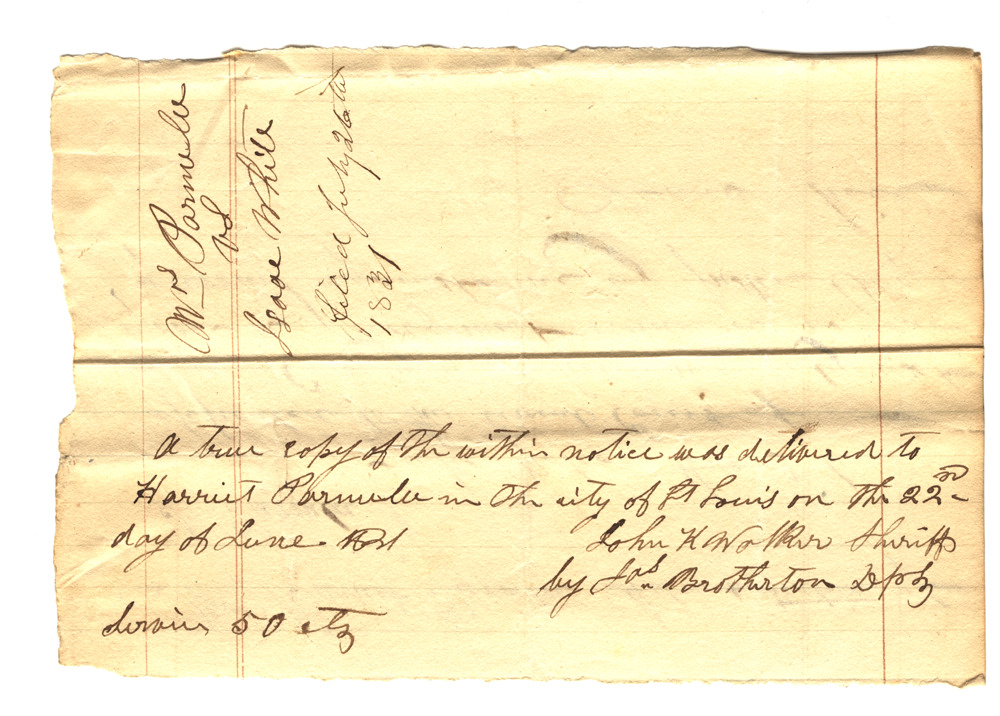 Mrs Parmele
vs
Isaac White
Filed July 26th
1831
A true copy of the within notice was delivered to
Harriet Parmele in the city of St Louis on the 22nd
day of June 1831
John K Walker Sheriff
by Jas Brotherton Dpty
Service 50 cts